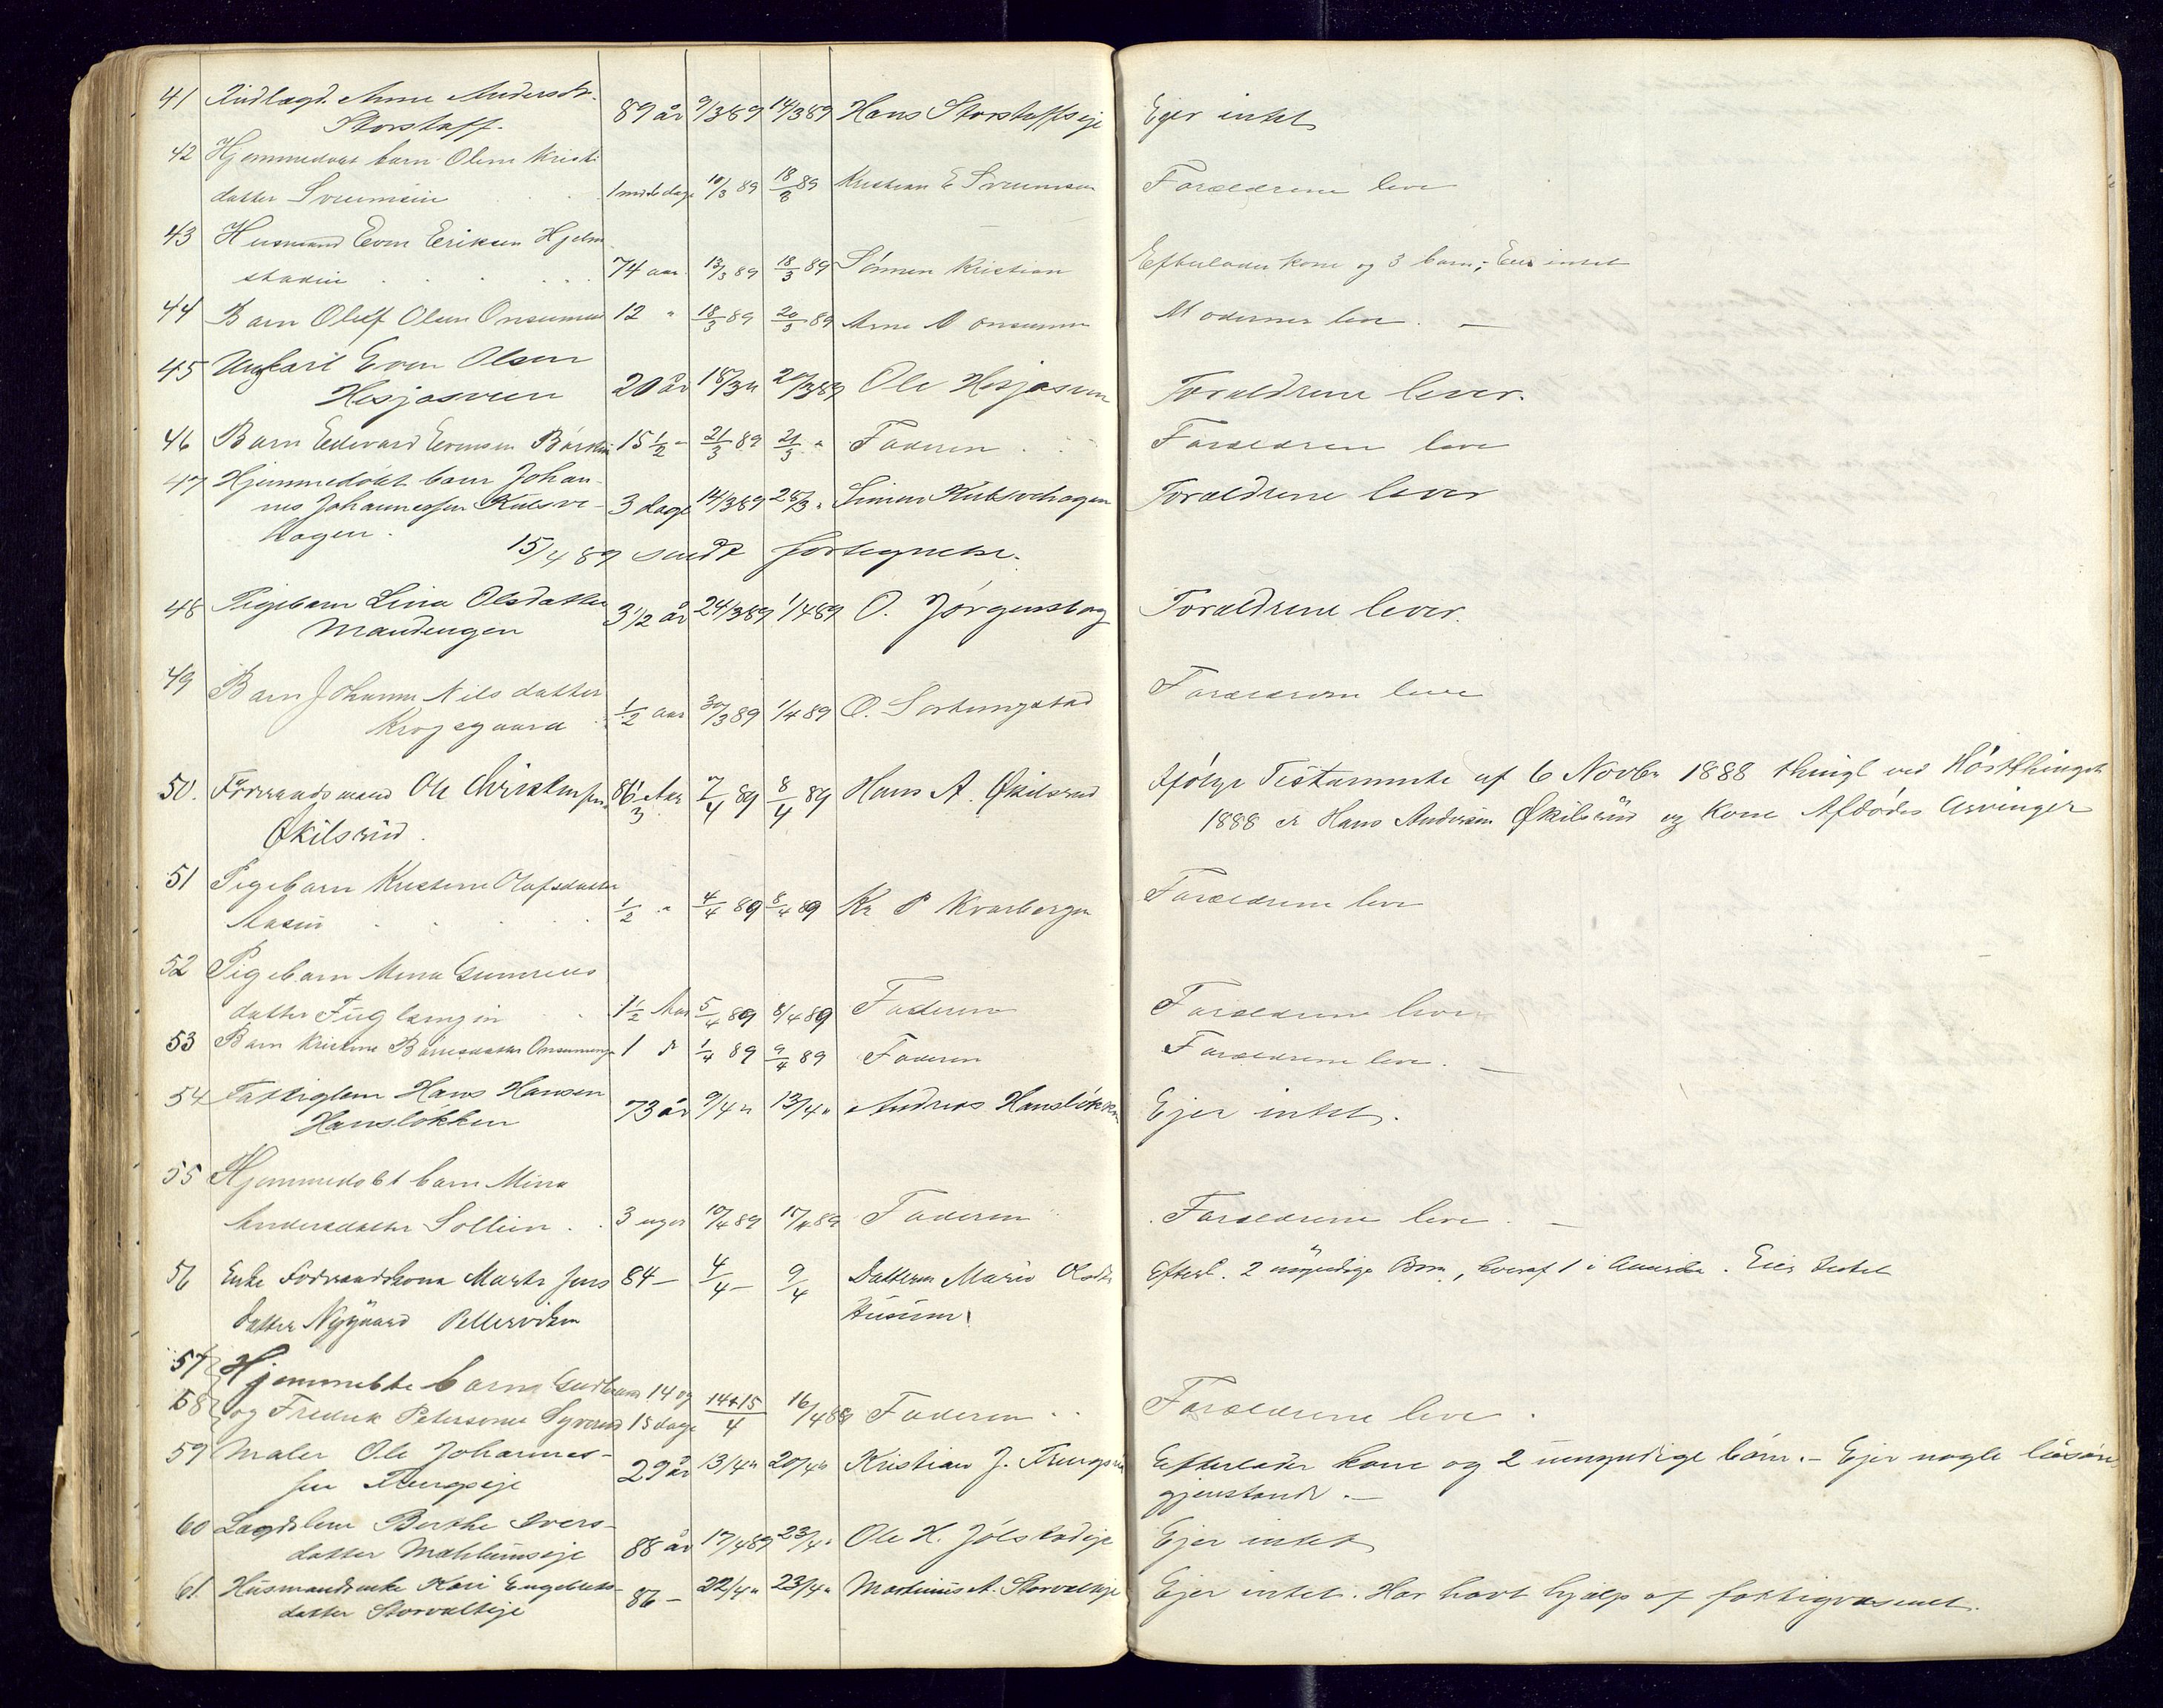 41 Indlagd. Anne Andersdr. Storstaff. 89 år 9/3 89 14/3 89 Hans Storstaffseje Ejer intet
42 Hjemmedøbt barn Oline Kristi
datter Sveumseie 10/3 89 18/3 89 Kristian E Sveumseie Forældrene leve
43 Husmand Even Eriksen Hjelm
stadeie 74 aar 13/3 89 18/3 89 Sønnen Kristian Efterlader kone og 3 børn; Eier intet
44 Barn Oluf Olsen Onsumeie 12 " 18/3 89 20/3 89 Arne Onsumeie Moderen leve. —
45 Ungkarl Even Olsen
Hesjasveen 20 år 18/3 " 20/3 89 Ole Hesjasveen Forældrene lever.
46 Barn Edevard Evensen 15 1/2 " 21/3 89 21/3 " Faderen Forældrene leve
47 Hjemmedøbt barn Johan-
nes Johannessen Kulsve- 3 dage 14/3 89 25/3 " Simen Kulsvehagen Forældrene lever
hagen.
15/4 89 sendt fortegnelse.
48 Pigebarn Lina Olsdatter
Maudengen 3 1/2 år 24/3 89 1/4 89 O. Jørgenstog Forældrene lever.
49 Barn Johanne Nilsdatter
Krogsgaard 1/2 aar 30/3 89 1/4 89 O. Sortungstad Forældrene leve
50. Føderaadsmand Ole Christensen 86 Aar 7/4 89 8/4 89 Hans A. Økilsrud Ifølge Testamente af 6 Novbr 1888 thingl ved Høstthinget
Økilsrud. 1888 er Hans Andersen Økilsrud og Kone Afdødes Arvinger
51 Pigebarn Kristine Olafsdatter
Aaseie 1/2 " 4/4 89 8/4 89 Kr P Kvarbergen Forældrene leve
52 Pigebarn Mina Gunerius
datter Fuglengen 1 1/2 Aar 5/4 89 8/4 89 Faderen Forældrene leve
53 Barn Kristine Onsumengen 1 d 1/4 89 9/4 89 Faderen Forældrene leve. —
54 Fattiglem Hans Hansen
Hansløkken 73 år 9/4 " 13/4 " Andreas Hansløkken Ejer intet.
55 Hjemmedøbt barn Mina
Andersdatter Sollien. 3 uger 10/4 89 15/4 89 Faderen Forældrene leve. —
56 Enke Føderaadskone Marte Jens 84 — 4/4 — 9/4 Datteren Marie Olsdtr Efterl. 2 myndige Børn, hvoraf 1 i Amerika. Eier Intet
datter Nygaard Pellerviken Husum
57 Hjemmebte barn Gudbrand 14 og
58 og Fredrik Petersønner Syverud 15 dage 14+15/4 16/4 89 Faderen Forældrene leve.
59 Maler Ole Johannes-
sen Trengseje 29 år 13/4 " 20/4 " Kristian J. Trengseie Efterlader kone og 2 umyndige børn. — Ejer nogle løsøre
gjenstande. —
60 Lagdslem Berthe Ivers-
datter Mæhlumseje 88 år 17/4 89 23/4 " Ole H. Jølstadeje Ejer intet
61. Husmandsenke Kari Engebrets-
datter Storvalteje 86 — 22/4 " 23/4 " Martinus A. Storvalteje Ejer intet. Har havt hjælp af fattigvæsenet.